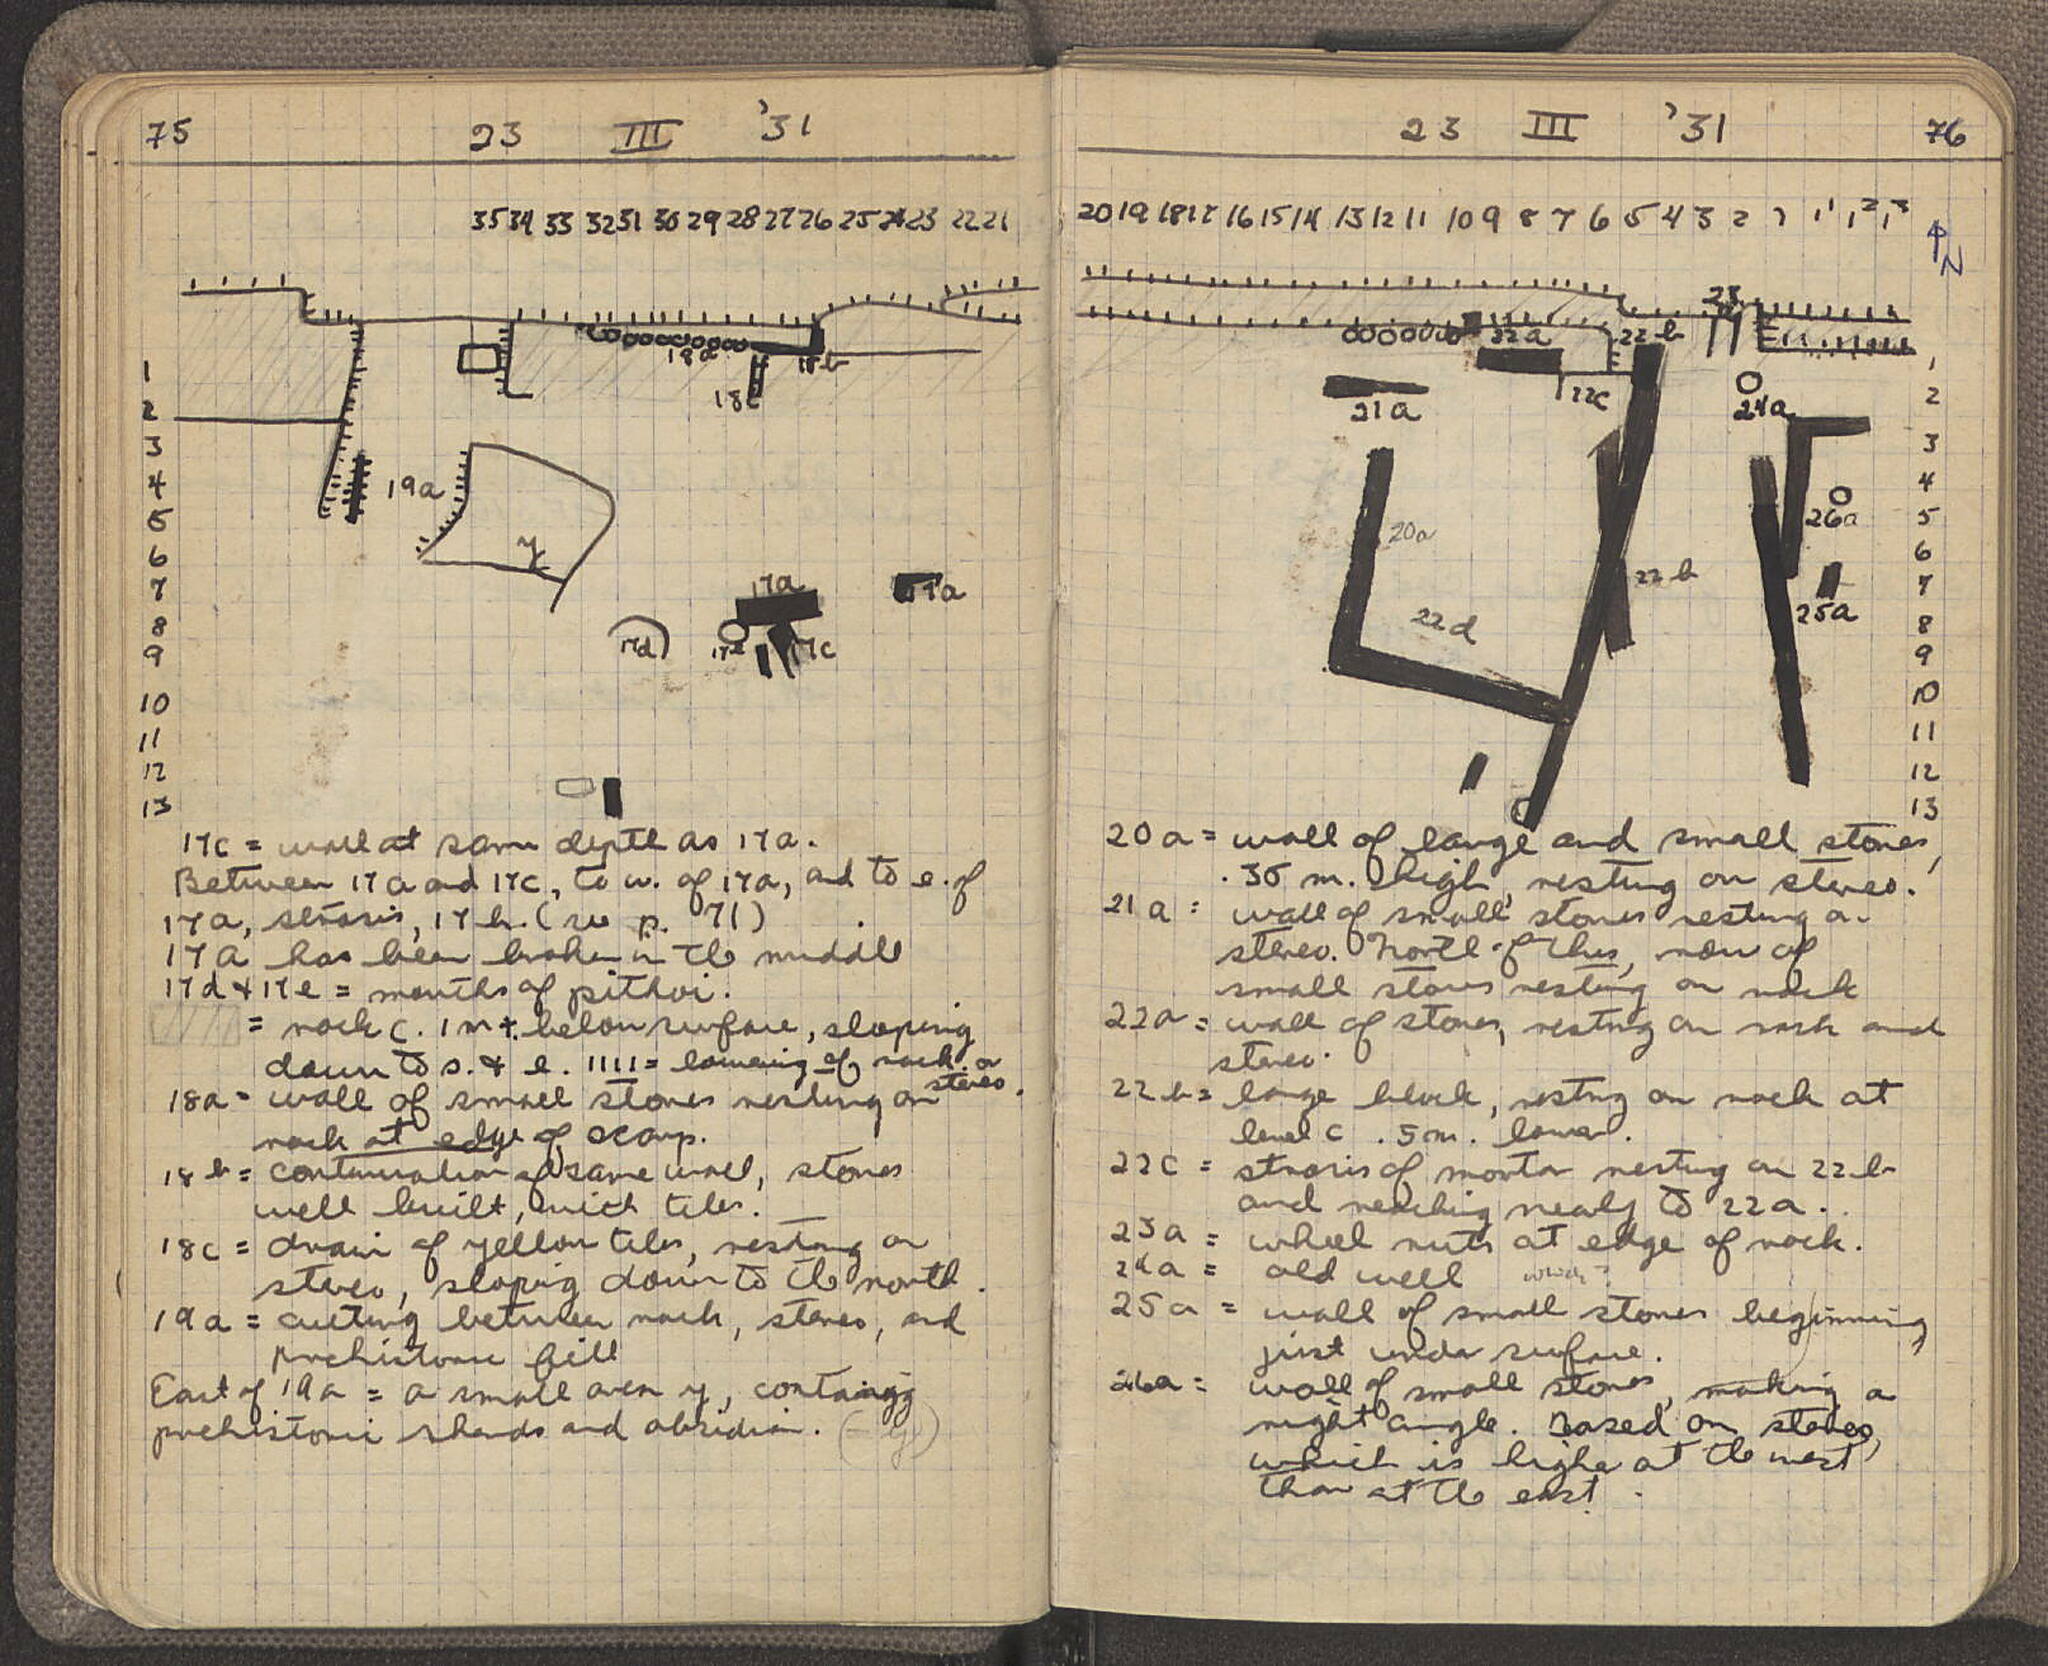 75 23 III '31
35 34 33 32 31 30 29 28 27 26 25 24 23 22 21
18a
18b
18c
1
2
3
4
5
6
7
8
9
10
11
12
13
19a
y
17a
17a
17d
17e
17c
17c = wall at same depth as 17a.
Between 17a and 17c, to w. of 17a, and to e. of
17a, strosis, 17b. (see p. 71)
17a has been broken in the middle
17d + 17e = mouths of pithoi.
= rock c. 1 m +. below surface, sloping
down to s. & e. 1111 = lowering of rock or
stereo.
18a = wall of small stones resting on
rock at edge of scarp.
18b = continuation of same wall, stones
well built, with tiles.
18c = drain of yellow tiles, resting on
stereo, sloping down to the north.
19a = cutting between rock, stereo, and
prehistoric fill
East of 19a = a small area y, containing
prehistoric sherds and obsidian.
23 III '31 76
20 19 18 17 16 15 14 13 12 11 10 9 8 7 6 5 4 3 2 1 '1 '2 '3
N
23
22a
22b
22c
21a
24a
20a
26a
22b
25a
22d
1
2
3
4
5
6
7
8
9
10
11
12
13
20a = wall of large and small stones,
.35 m. high, resting on stereo.
21a = wall of small stones resting on
stereo. North of this, row of
small stones resting on rock
22a = wall of stones, resting on rock and
stereo.
22b = large block, resting on rock at
level c .5 m. lower.
22c = strosis of mortar resting on 22b
and reaching nearly to 22a..
23a = wheel ruts at edge of rock.
24a = old well
25a = wall of small stones beginning
just under surface.
26a = wall of small stones, making a
right angle. Based on stereo,
which is higher at the west
than at the east.